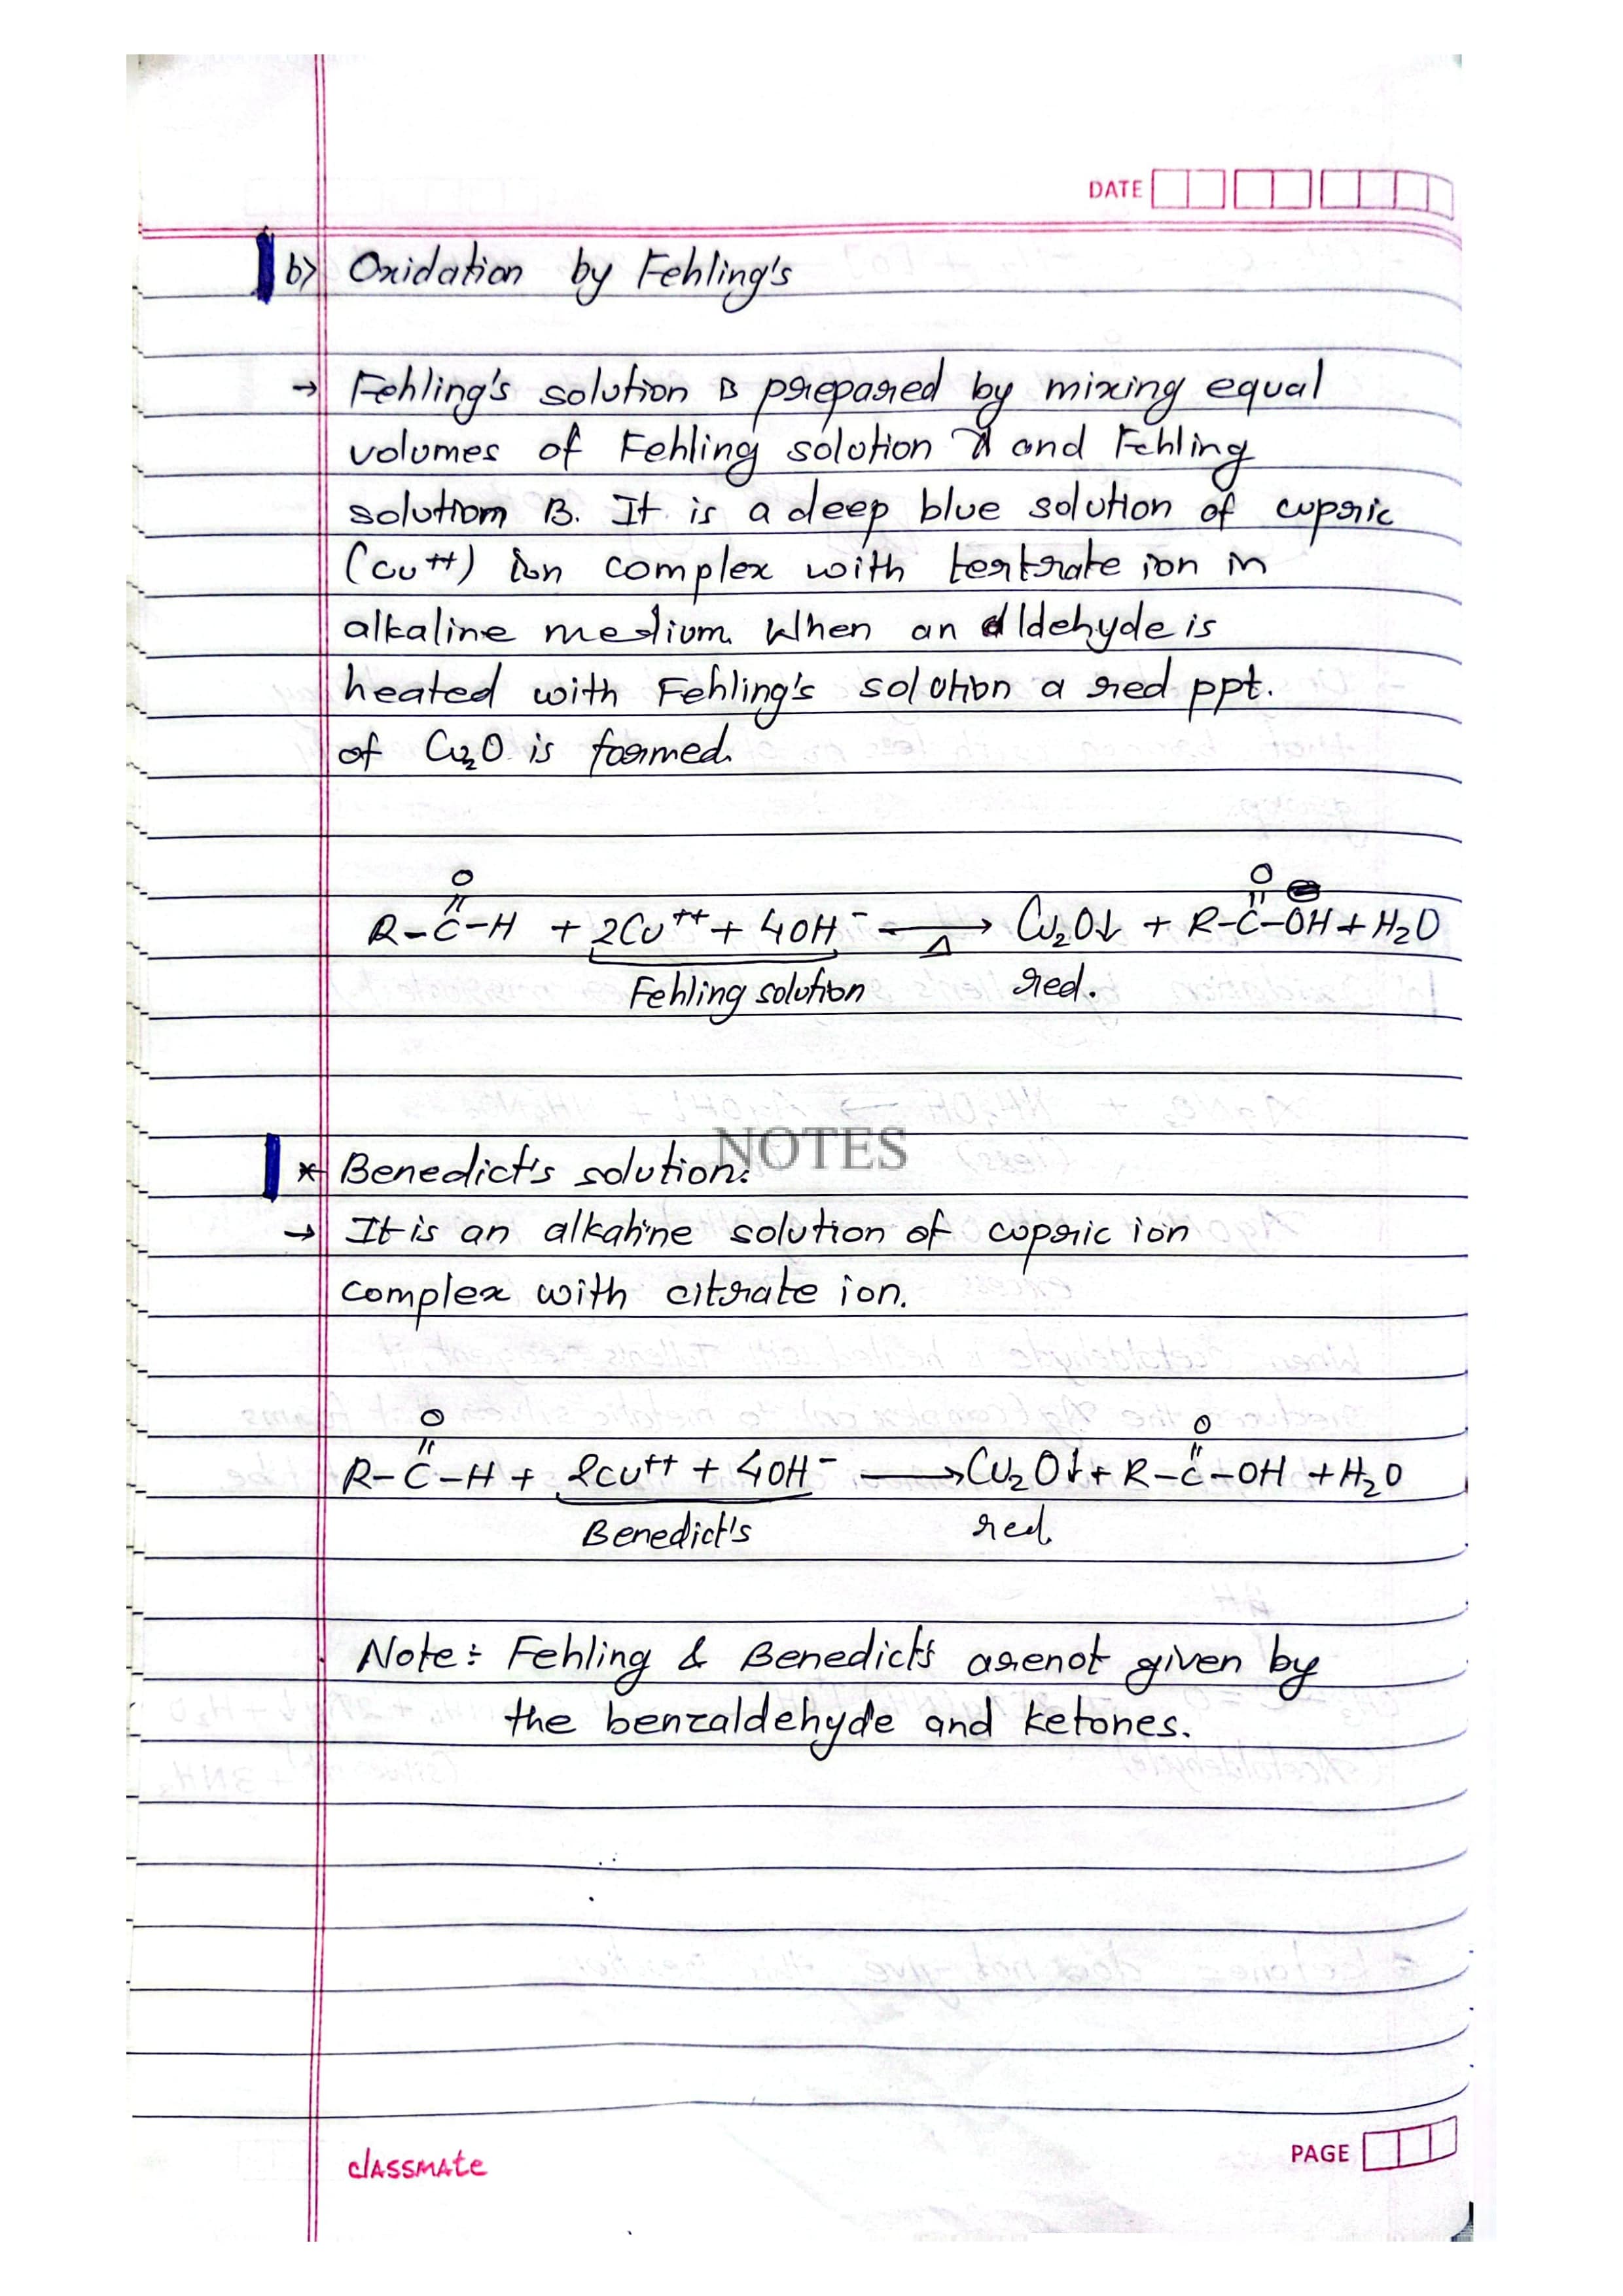 DATE
b) Oxidation by Fehling's
→ Fehling's solution is prepared by mixing equal
volumes of Fehling solution A and Fehling
solution B. It is a deep blue solution of cupric
(Cu++) ion complex with tertrate ion in
alkaline medium. When an aldehyde is
heated with Fehling's solution a red ppt.
of Cu₂O is formed.
O
R-C-H + 2Cu++ + 4OH⁻ →Δ Cu₂O↓ + R-C-OH + H₂O
Fehling solution red.
NOTES
* Benedict's solution:
→ It is an alkaline solution of cupric ion
complex with citrate ion.
O
R-C-H + 2Cu++ + 4OH⁻ → Cu₂O↓ + R-C-OH + H₂O
Benedict's red.
Note: Fehling & Benedict's are not given by
the benzaldehyde and ketones.
classmate
PAGE